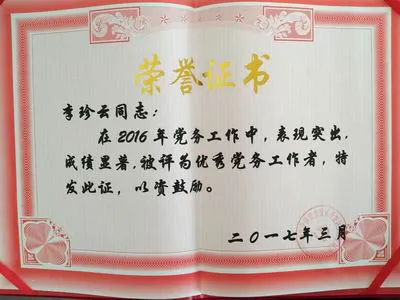 荣誉证书
李珍云同志：
在2016年党务工作中，表现突出，
成绩显著，被评为优秀党务工作者，特
发此证，以资鼓励。
二〇一七年三月